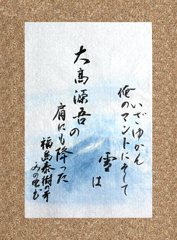 いざゆかん
俺のマントにそして
雪は
大高源吾の
肩にも降った
福島泰樹